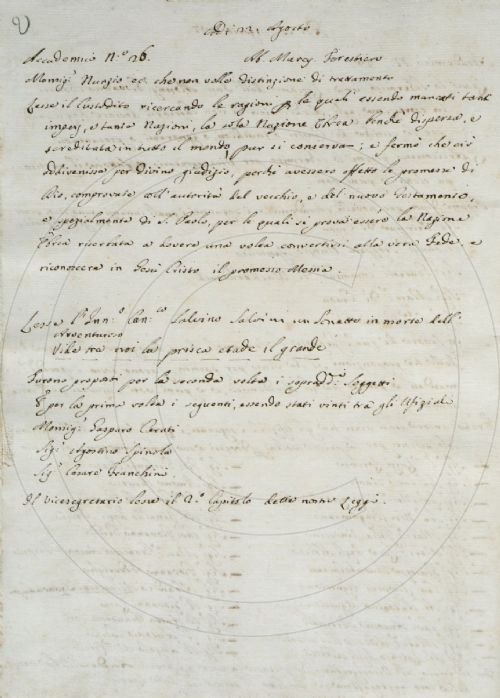 Adi 12. Agosto
Accademici N.º 26. Ab. Marcy Forestiero
Monsig.r Nunzio ec. che non volle distinzione di trattamento
Lesse il Custodito ricercando le ragioni p le quali essendo mancati tanti
imperj, e tante Nazioni, la sola Nazione Ebrea benchè dispersa, e
screditata in tutto il mondo, pur si conservan; e fermò che ciò
addivenisse per divino giudizio, perchè avessero effetto le promesse di
Dio, comprovate coll'autorità del vecchio, e del nuovo Testamento,
e spezialmente di S. Paolo, per le quali si prova essere la Nazione
Ebrea riserbata a dovere una volta convertirsi alla vera Fede, e
riconoscere in Gesù Cristo il promesso Messia.
Lesse l'Inn.º Can.co Salvino Salvini un Sonetto in morte dell'
Avventuroso
Vide tra noi la prisca etade il grande
Furono proposti per la seconda volta i sopradd.i Soggetti
E per la prima volta i seguenti, essendo stati vinti tra gli Ufiziali
Monsig.r Gasparo Cerati
Sig.r Agostino Spinola
Sig.r Cesare Franchini
Il Vicesegretario lesse il 2.º Capitolo delle nostre Leggi.